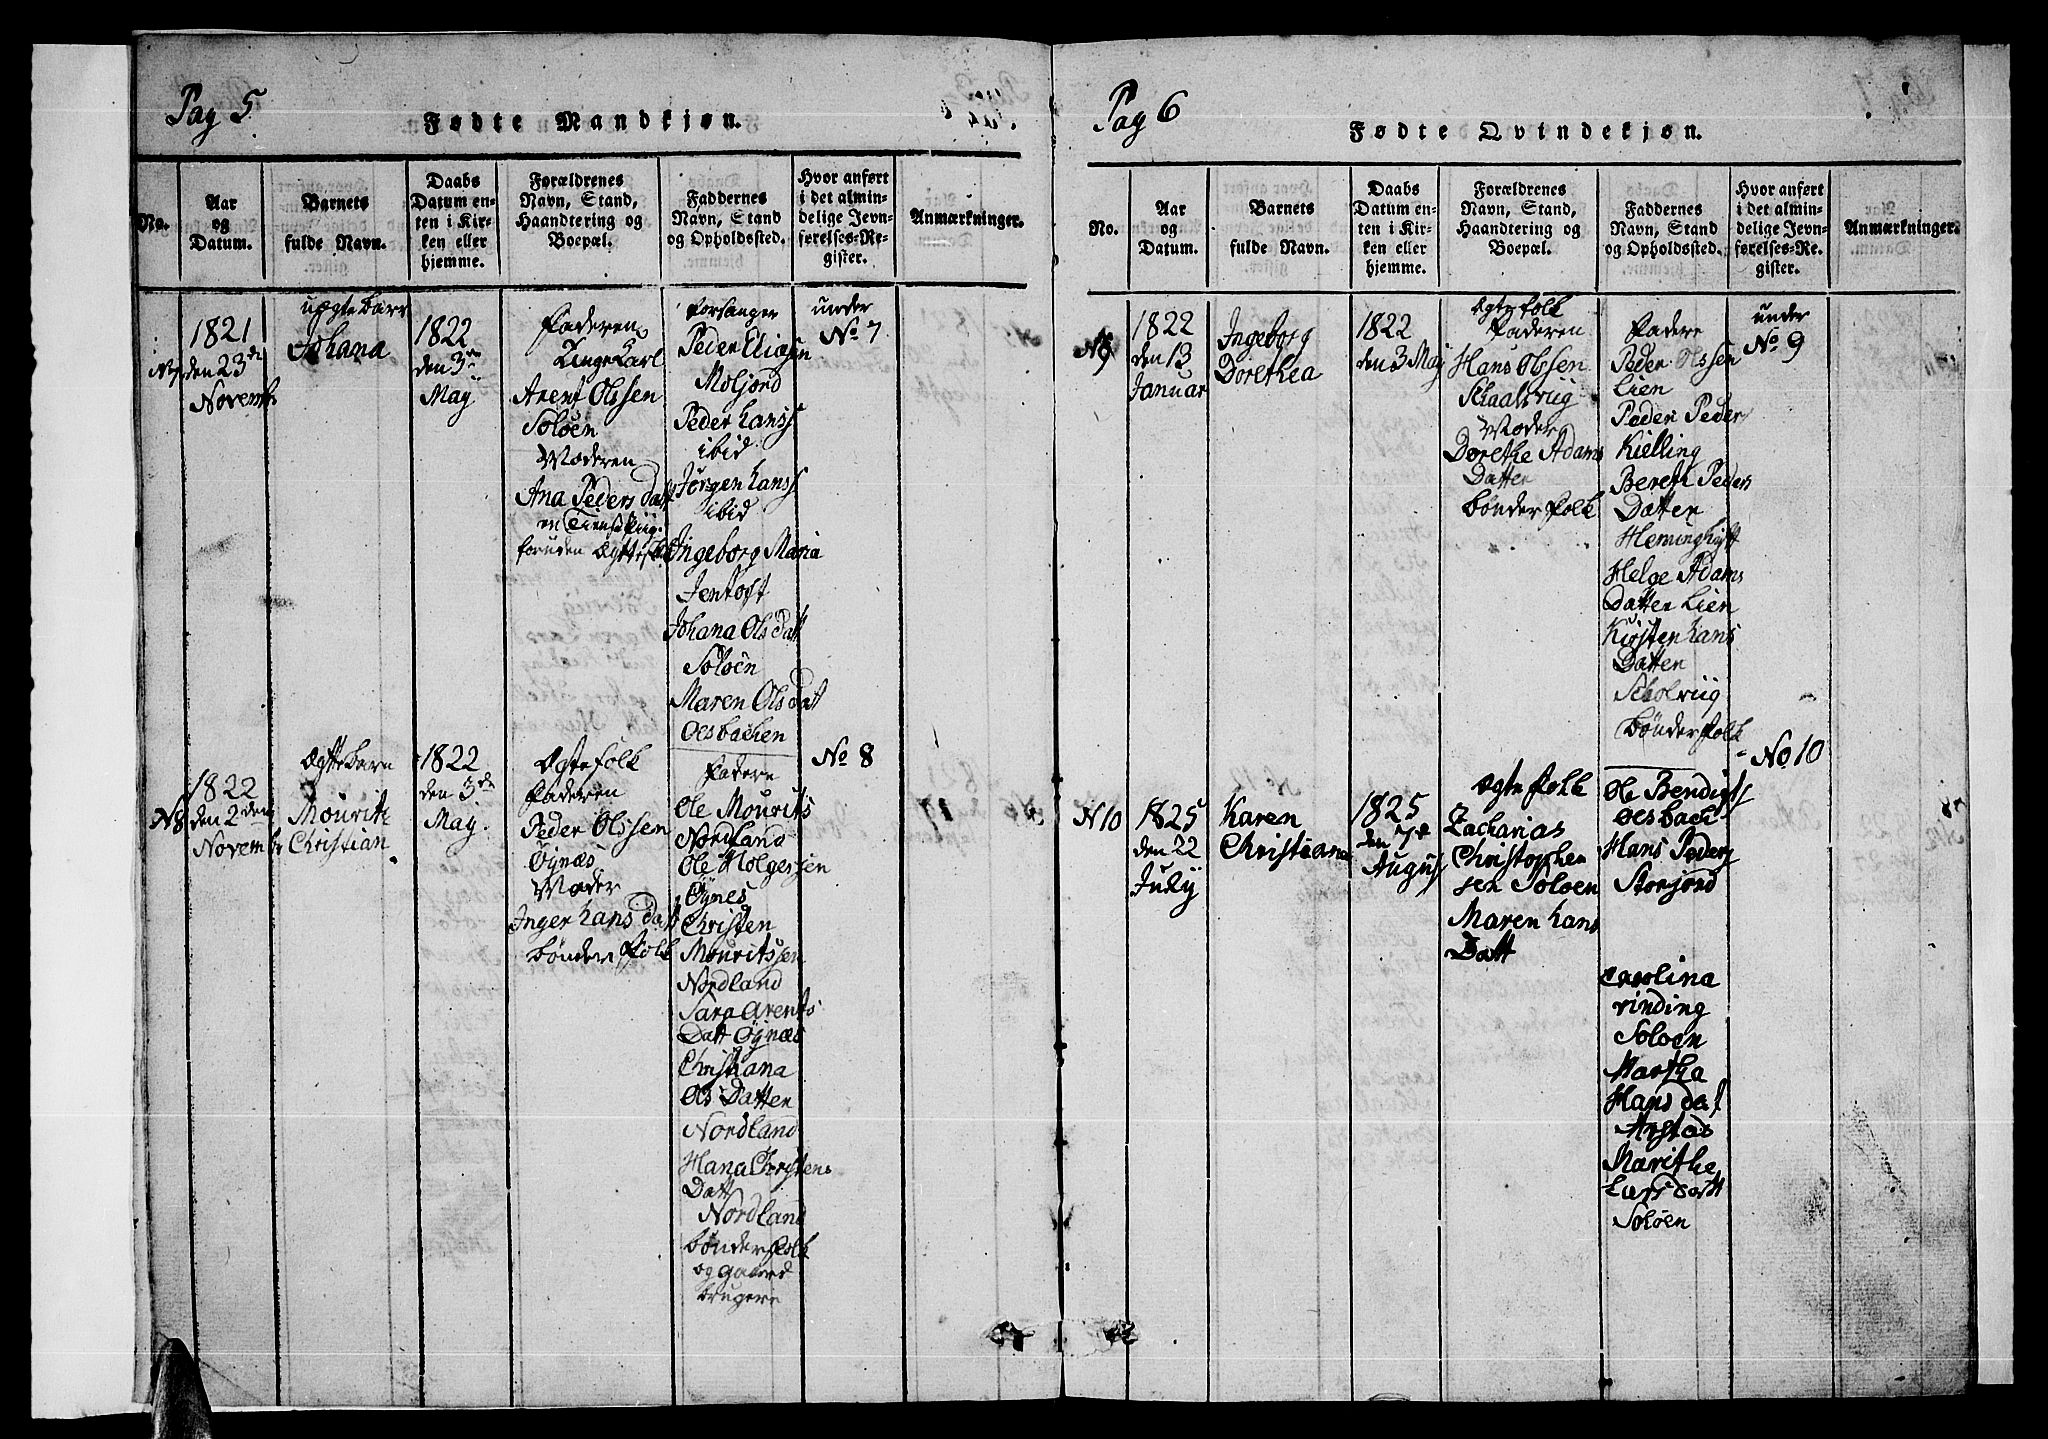 Pag 5
Fødte Mandkjøn.
No.
Aar
og
Datum.
Barnets
fulde Navn.
Daabs
Datum en-
ten i Kir-
ken eller
hjemme.
Forældrenes
Navn, Stand,
Haandtering og
Boepæl.
Faddernes
Navn, Stand
og Opholdssted.
Hvor anført
i det almin-
delige Jevn-
førelses-Re-
gister.
Anmærkninger.
1821
den 23de
Novemb
uægte barn
Johana
1822
den 3die
May
Faderen
Unge Karl
Arent Olssen
Soløen
Moderen
Ana Peders datt
en Tieneste
foruden Ægtes
Forsanger
Peder Eliasen
Moljord
Peder Hanss
ibid
Jørgen Hanss
ibid
Ingeborg Maria
Jentoft
Johana Ols datt
Soløen
Maren Ols datt
Oesbachen
under
No 7
N 8
1822
den 2den
Novemb
Ægtebarn
Mouritz
Christian
1822
den 3de
May.
Ægtefolk
Faderen
Peder Olssen
Øynæs
Moder
Inger Hans datt
bønder folk
Fadere
Ole Mourits
Nordland
Ole Holgerssen
Øynes
Christen
Mouritssen
Nordland
Sara Arents
Datt Øynæs
Christiana
Ols Datter
Nordland
Hana Christens
Datt
Nordland
bønder folk
og gaard
brugere
No 8
Pag 6
Fødte Qvindekjøn.
No.
Aar
og
Datum.
Barnets
fulde Navn.
Daabs
Datum en-
ten i Kir-
ken eller
hjemme.
Forældrenes
Navn, Stand,
Haandtering og
Boepæl.
Faddernes
Navn, Stand
og Opholdssted.
Hvor anført
i det almin-
delige Jevn-
førelses-Re-
gister.
Anmærkninger.
N 9
1822
den 13
Januar
Ingeborg
Dorethea
1822
den 3 May
Ægte folk
Faderen
Hans Olssen
Skaalsviig
Moder
Dorethe Adams
Datter
bønder folk
Fadere
Peder Olssen
Lien
Peder Peder
Kielling
Bereth Peders
Datter
Heminghytt
Helge Adams
Datter Lien
Kirsten Hans
Datter
Scholviig
bønder folk
under
No 9
N 10
1825
den 22
Julij
Karen
Christiana
1825
den 7de
August
Ægte folk
Zacharias
Christopher
sen Soløen
Maren Hans
Datt
Ole Bendigts
Oesbach
Hans Peders
Storjord
Carolina
Vinding
Soløen
Martha
Hans dat
Arstad
Marithe
Lars datt
Soløen
No 10